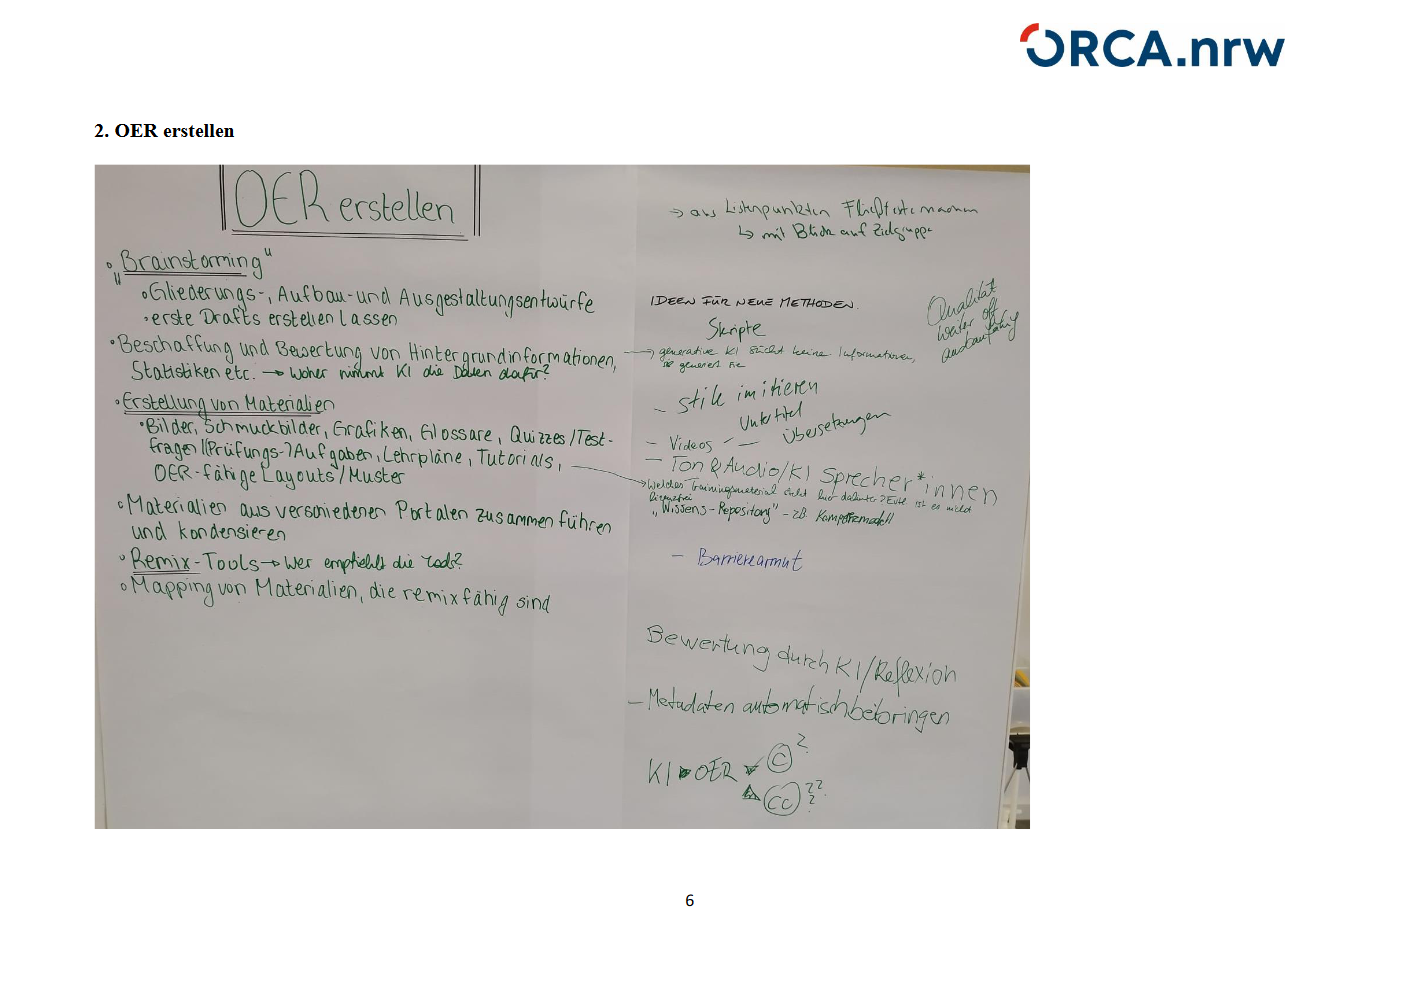 ORCA.nrw
2. OER erstellen
OER erstellen
"Brainstorming"
Gliederungs-, Aufbau- und Ausgestaltungsentwürfe
erste Drafts erstellen lassen
Beschaffung und Bewertung von Hintergrundinformationen,
Statistiken etc. → Woher nimmt KI die Daten dafür?
Erstellung von Materialien
Bilder, Schmuckbilder, Grafiken, Glossare, Quizzes/Test-
fragen/(Prüfungs-)Aufgaben, Lehrpläne, Tutorials,
OER-fähige Layouts/Muster
Materialien aus verschiedenen Portalen zusammenführen
und kondensieren
Remix-Tools → Wer empfiehlt die Tools?
Mapping von Materialien, die remixfähig sind
→ aus Listenpunkten Fließtexte machen
↳ mit Blick auf Zielgruppe
IDEEN FÜR NEUE METHODEN.
Qualität
weiter oft
Skripte
→ generative KI sucht keine Informationen,
generiert sie
- Stile imitieren
Untertitel
- Videos - Übersetzungen
- Ton & Audio/KI Sprecher*innen
→ Welches Trainingsmaterial steht hier dahinter? Evtl. ist es nicht
lizenzfrei
"Wissens-Repository" - zB Kompetenzmodell
- Barrierearmut
Bewertung durch KI/Reflexion
- Metadaten automatisch beibringen
KI ▶ OER © ?
CC ???
6